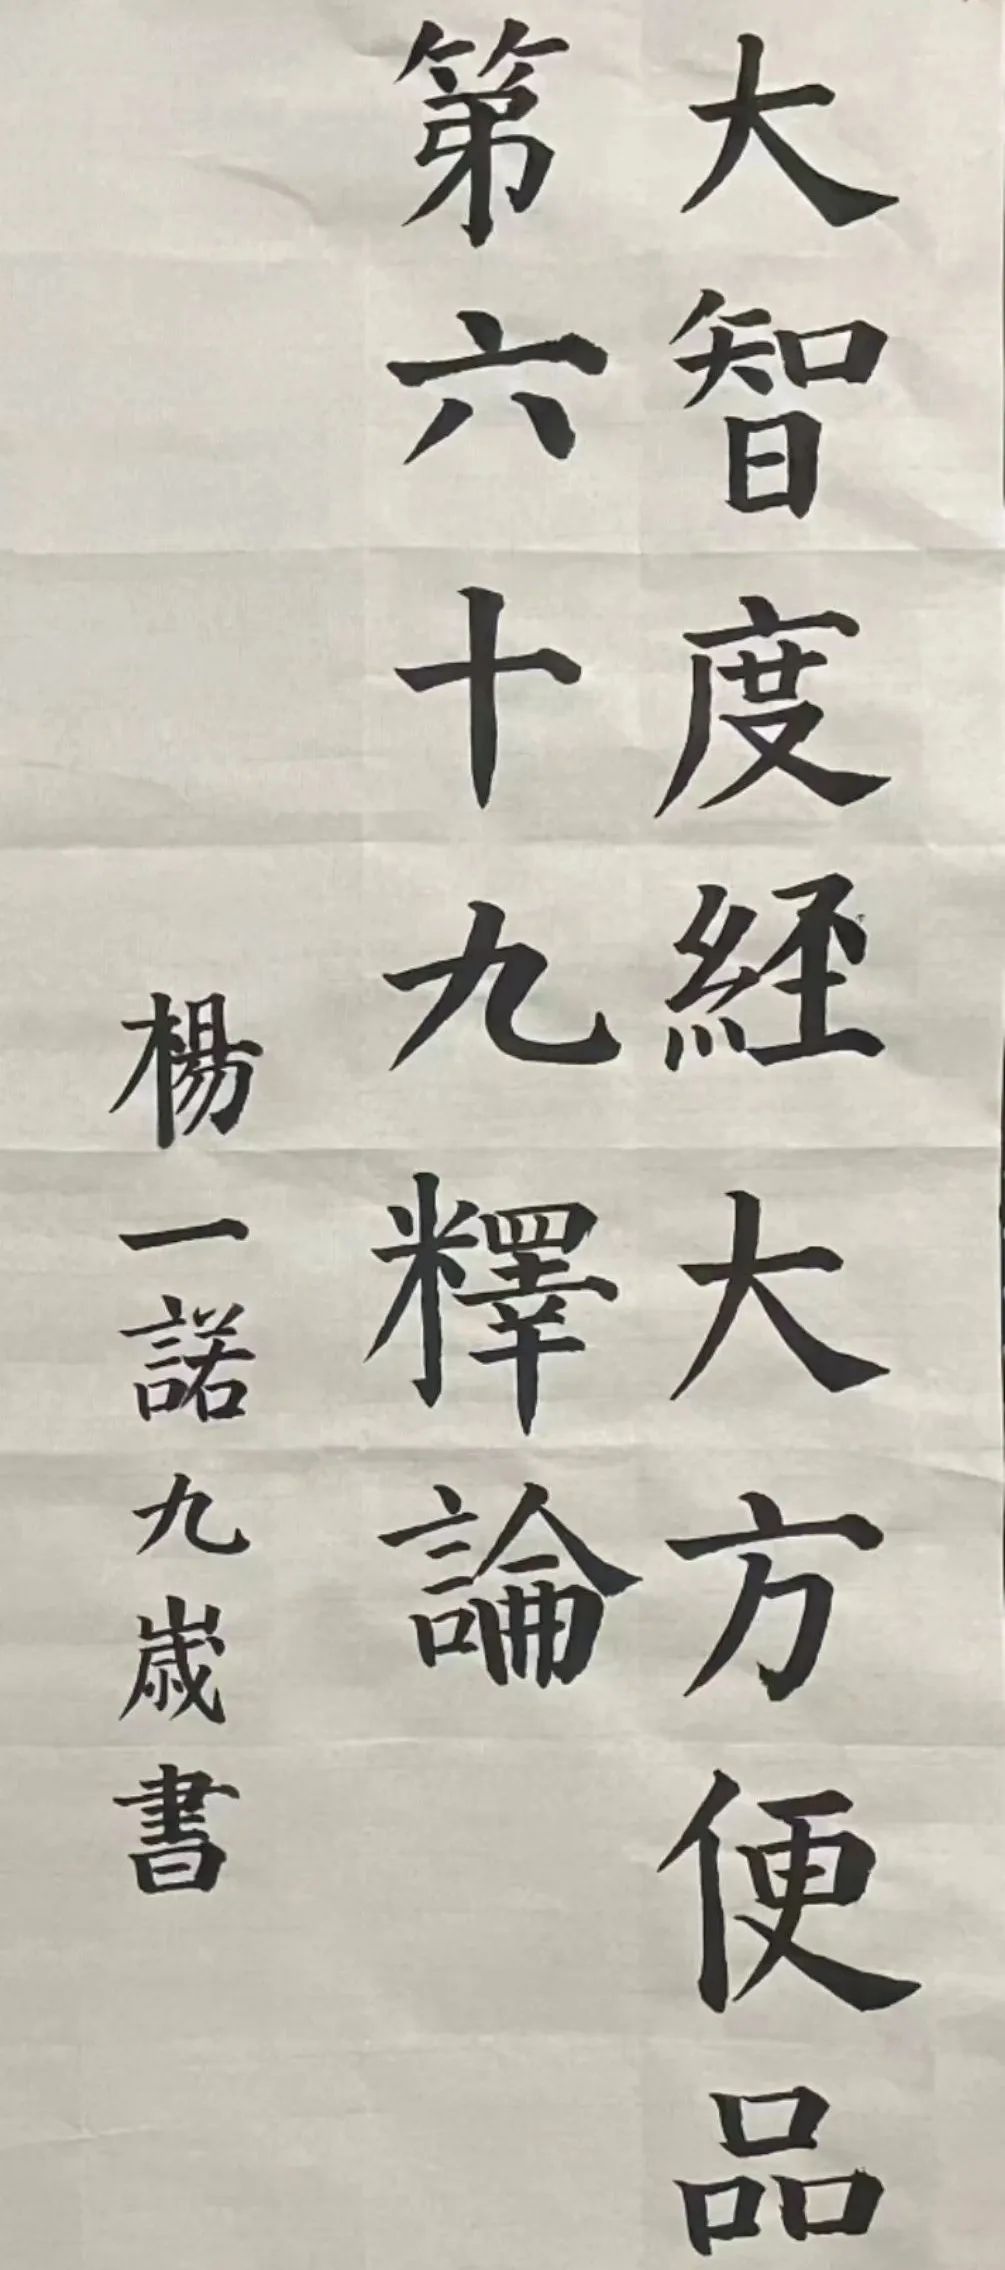 大智度経大方便品
第六十九釋論
楊一諾九歲書